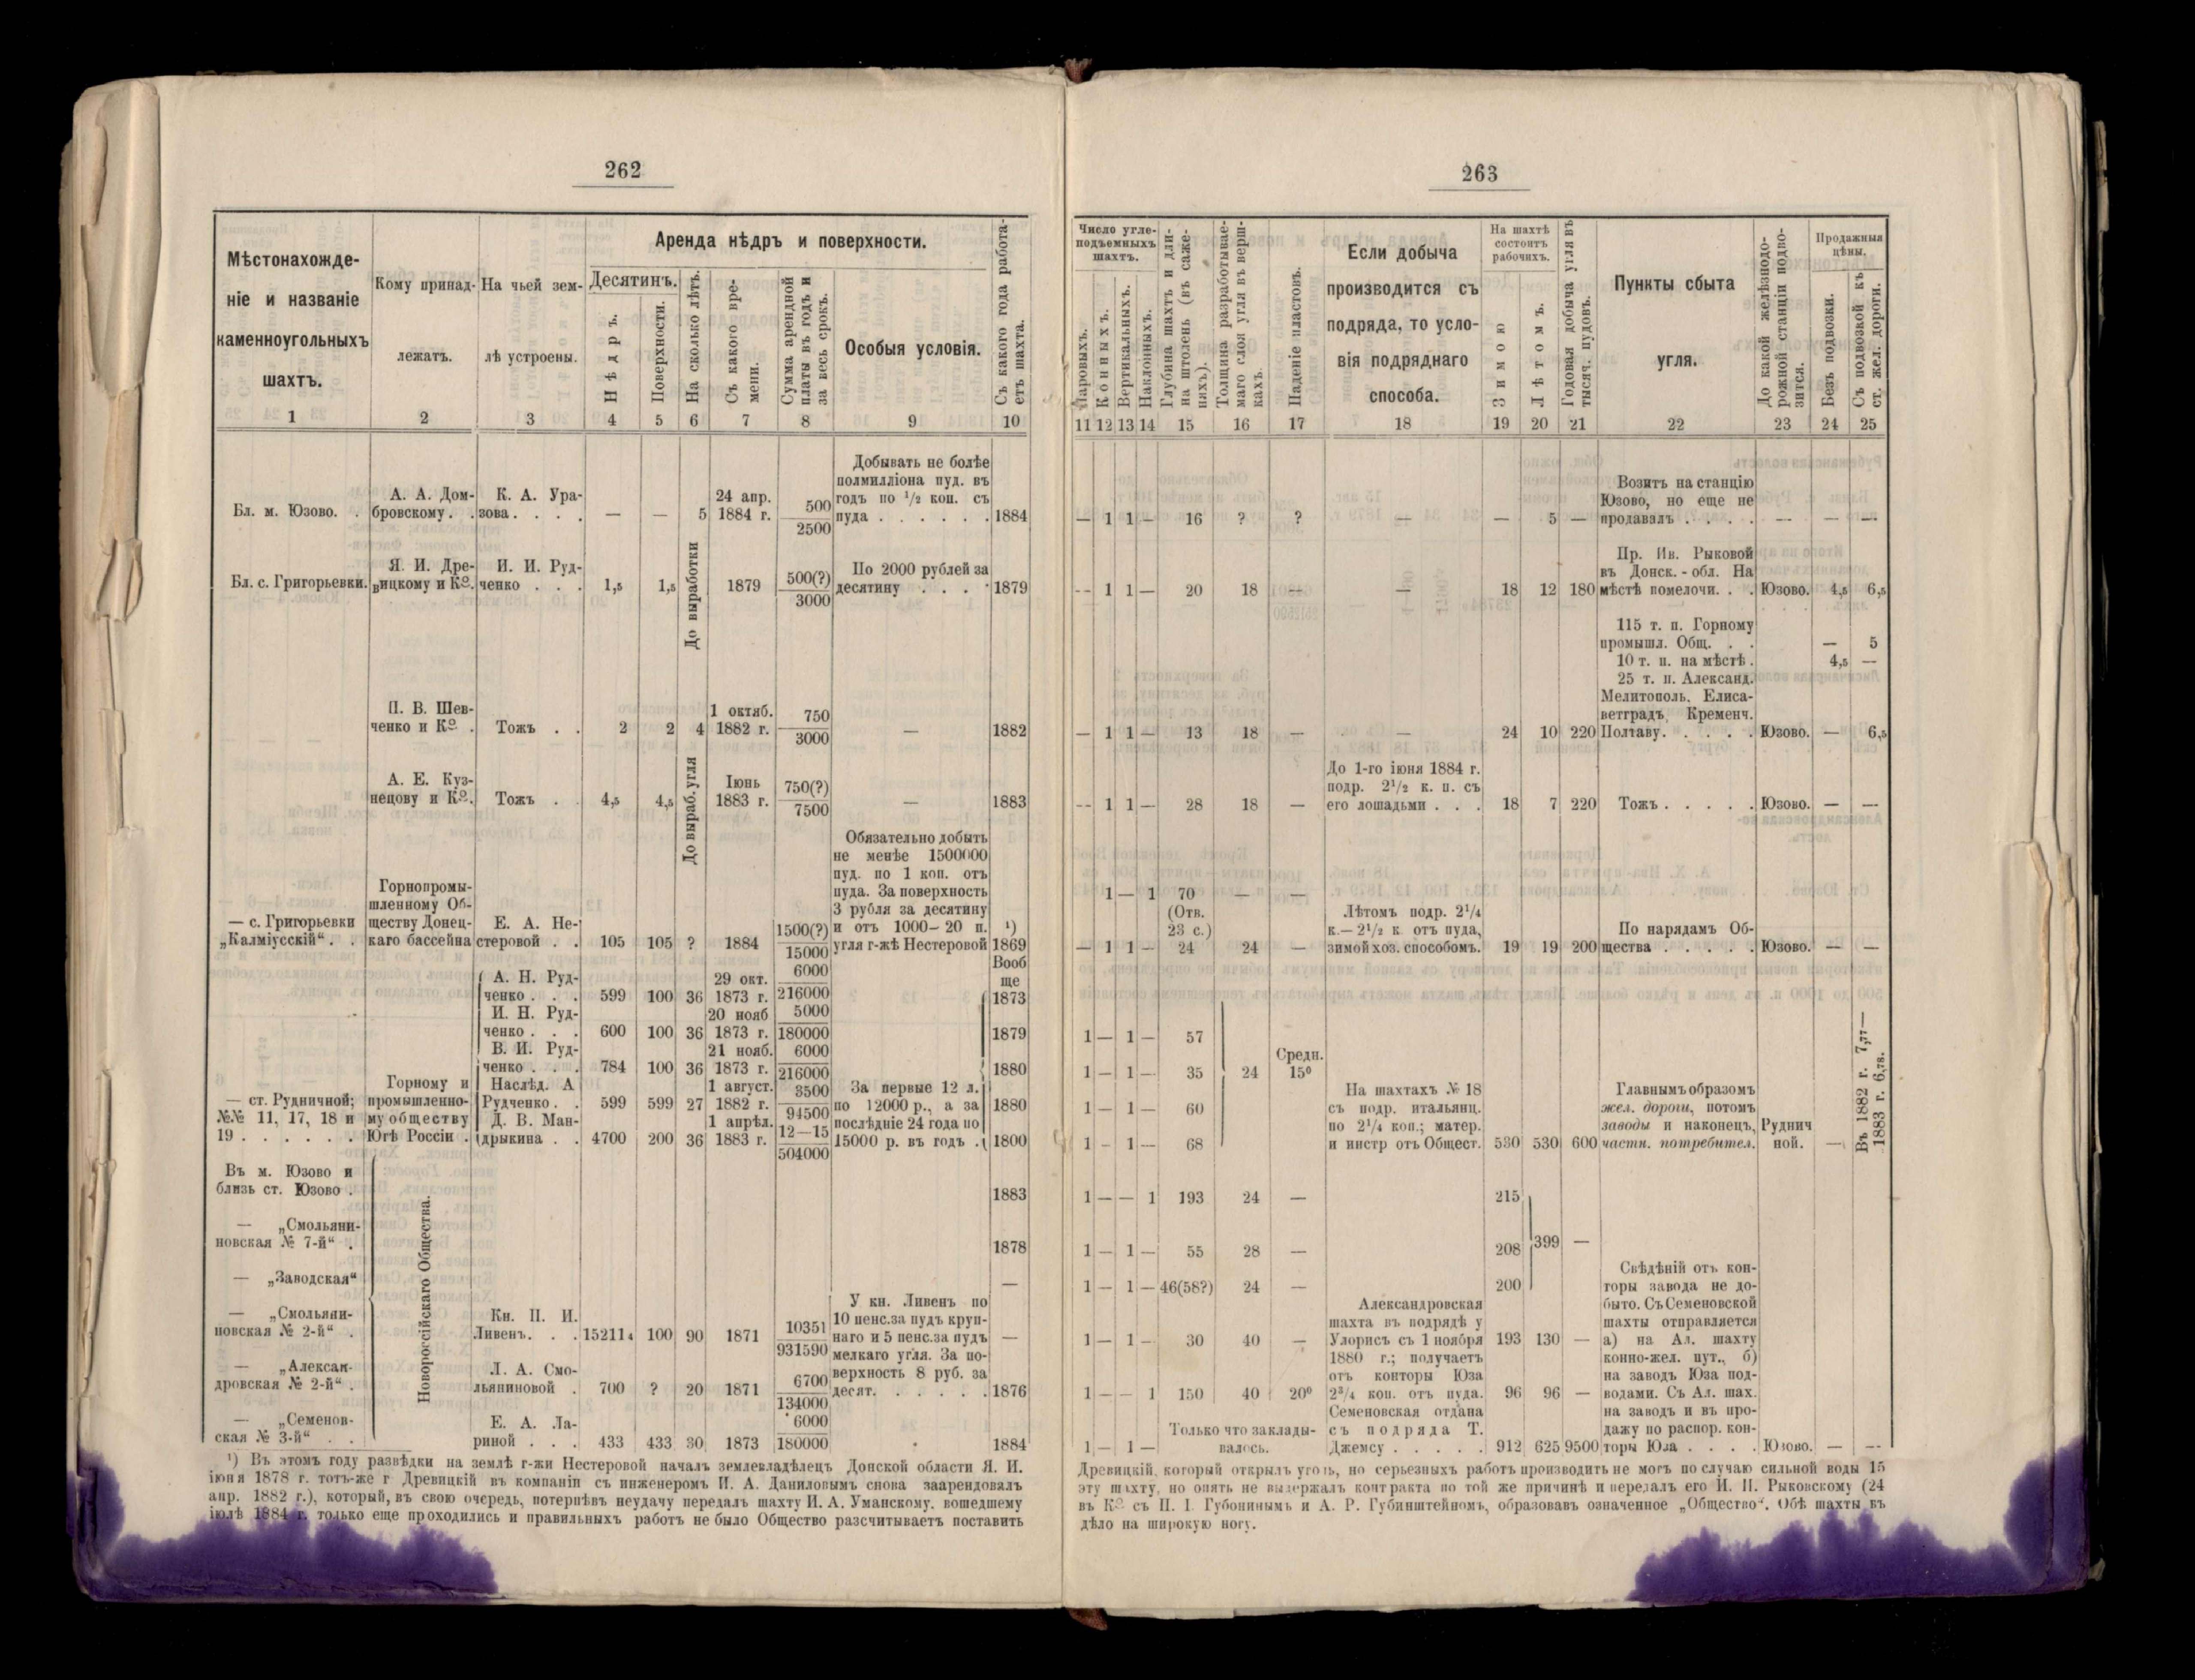 262
Мѣстонахожде-
ніе и названіе
каменноугольныхъ
шахтъ.
1
Кому принад-
лежатъ.
2
На чьей зем-
лѣ устроены.
3
Аренда нѣдръ и поверхности.
Десятинъ.
Нѣдръ.
4
Поверхности.
5
На сколько лѣтъ.
6
Съ какого вре-
мени.
7
Сумма арендной
платы въ годъ и
за весь срокъ.
8
Особыя условія.
9
Съ какого года работа-
етъ шахта.
10
Бл. м. Юзово. .
А. А. Дом-
бровскому. .
К. А. Ура-
зова. . . .
— — 5
24 апр.
1884 г.
500
2500
Добывать не болѣе
полмилліона пуд. въ
годъ по 1/2 коп. съ
пуда . . . . . .
1884
Бл. с. Григорьевки.
Я. И. Дре-
вицкому и Ко.
И. И. Руд-
ченко . . .
1,5 1,5
До выработки
1879
500(?)
3000
По 2000 рублей за
десятину . . . .
1879
П. В. Шев-
ченко и Ко .
Тожъ . .
2 2 4
1 октяб.
1882 г.
750
3000
—
1882
А. Е. Куз-
нецову и Ко.
Тожъ . .
4,5 4,5
До выраб. угля
Іюнь
1883 г.
750(?)
7500
—
1883
— с. Григорьевки
„Калміусскій“ . .
Горнопромы-
шленному Об-
ществу Донец-
каго бассейна
Е. А. Не-
стеровой . .
105 105 ? 1884
1500(?)
15000
Обязательно добыть
не менѣе 1500000
пуд. по 1 коп. отъ
пуда. За поверхность
3 рубля за десятину
и отъ 1000—20 п.
угля г-жѣ Нестеровой
¹)
1869
Вооб
ще
— ст. Рудничной;
№№ 11, 17, 18 и
19 . . . . . .
Горному и
промышленно-
му обществу
Югѣ Россіи .
А. Н. Руд-
ченко . . .
599 100 36
29 окт.
1873 г.
6000
216000
1873
И. Н. Руд-
ченко . . .
600 100 36
20 нояб
1873 г.
5000
180000
1879
В. И. Руд-
ченко . . .
784 100 36
21 нояб.
1873 г.
6000
216000
1880
Наслѣд. А
Рудченко . .
599 599 27
1 август.
1882 г.
3500
94500
1880
Д. В. Ман-
дрыкина . .
4700 200 36
1 апрѣл.
1883 г.
12—15
504000
За первые 12 л.
по 12000 р., а за
послѣдніе 24 года по
15000 р. въ годъ .
1800
Новороссійскаго Общества.
Въ м. Юзово и
близь ст. Юзово .
1883
— „Смольяни-
новская № 7-й“ .
1878
— „Заводская“
—
— „Смольяни-
новская № 2-й“ .
Кн. П. И.
Ливенъ. . .
15211₄ 100 90 1871
10351
931590
—
— „Алексан-
дровская № 2-й“ .
Л. А. Смо-
льяниновой .
700 ? 20 1871
6700
134000
У кн. Ливенъ по
10 пенс. за пудъ круп-
наго и 5 пенс. за пудъ
мелкаго угля. За по-
верхность 8 руб. за
десят. . . . . .
1876
— „Семенов-
ская № 3-й“ . .
Е. А. Ла-
риной . . .
433 433 30 1873
6000
180000
1884
¹) Въ этомъ году развѣдки на землѣ г-жи Нестеровой началъ землевладѣлецъ Донской области Я. И.
іюня 1878 г. тотъ-же г Древицкій въ компаніи съ инженеромъ И. А. Даниловымъ снова заарендовалъ
апр. 1882 г.), который, въ свою очередь, потерпѣвъ неудачу передалъ шахту И. А. Уманскому, вошедшему
іюлѣ 1884 г. только еще проходились и правильныхъ работъ не было Общество разсчитываетъ поставить
263
Число угле-
подъемныхъ
шахтъ.
Паровыхъ.
11
Конныхъ.
12
Вертикальныхъ.
13
Наклонныхъ.
14
Глубина шахтъ и дли-
на штоленъ (въ саже-
няхъ).
15
Толщина разработывае-
маго слоя угля въ верш-
кахъ.
16
Паденіе пластовъ.
17
Если добыча
производится съ
подряда, то усло-
вія подряднаго
способа.
18
На шахтѣ
состоитъ
рабочихъ.
Зимою
19
Лѣтомъ.
20
Годовая добыча угля въ
тысяч. пудовъ.
21
Пункты сбыта
угля.
22
До какой желѣзнодо-
рожной станціи подво-
зится.
23
Продажныя
цѣны.
Безъ подвозки.
24
Съ подвозкой къ
ст. жел. дороги.
25
— 1 1 — 16 ? ? — — 5 —
Возитъ на станцію
Юзово, но еще не
продавалъ . . . .
— — —
-- 1 1 — 20 18 — — 18 12 180
Пр. Ив. Рыковой
въ Донск. - обл. На
мѣстѣ помелочи. . .
Юзово. 4,5 6,5
115 т. п. Горному
промышл. Общ. . .
— 5
10 т. п. на мѣстѣ .
4,5 —
25 т. п. Александ.
Мелитополь. Елиса-
ветградъ, Кременч.
Полтаву. . . . .
— 1 1 — 13 18 — — 24 10 220
Юзово. — 6,5
-- 1 1 — 28 18 —
До 1-го іюня 1884 г.
подр. 2½ к. п. съ
его лошадьми . . .
18 7 220
Тожъ . . . . .
Юзово. — —
1 — 1 70 — —
(Отв.
23 с.)
— 1 1 — 24 24 —
Лѣтомъ подр. 2¼
к.— 2½ к отъ пуда,
зимой хоз. способомъ.
19 19 200
По нарядамъ Об-
щества . . . . .
Юзово. — —
1 — 1 — 57
1 — 1 — 35
24
Средн.
15⁰
1 — 1 — 60
1 - 1 — 68
На шахтахъ № 18
съ подр. итальянц.
по 2¼ коп.; матер.
и инстр отъ Общест.
530 530 600
Главнымъ образомъ
жел. дороги, потомъ
заводы и наконецъ,
частн. потребител.
Руднич
ной.
—
Въ 1882 г. 7,77—
1883 г. 6,78.
1 — — 1 193 24 — 215
1 — 1 — 55 28 — 208
399 —
1 — 1 — 46(58?) 24 — 200
1 — 1 - 30 40 — 193 130 —
1 — — 1 150 40 20⁰ 96 96 —
Александровская
шахта въ подрядѣ у
Улорисъ съ 1 ноября
1880 г.; получаетъ
отъ конторы Юза
2¾ коп. отъ пуда.
Семеновская отдана
съ подряда Т.
Джемсу . . . . .
1 — 1 —
Только что заклады-
валось.
912 625 9500
Свѣдѣній отъ кон-
торы завода не до-
быто. Съ Семеновской
шахты отправляется
а) на Ал. шахту
конно-жел. пут., б)
на заводъ Юза под-
водами. Съ Ал. шах.
на заводъ и въ про-
дажу по распор. кон-
торы Юза . . . .
Юзово. — --
Древицкій, который открылъ уголь, но серьезныхъ работъ производить не могъ по случаю сильной воды 15
эту шахту, но опять не выдержалъ контракта по той же причинѣ и передалъ его И. П. Рыковскому (24
въ Ко съ П. І. Губонинымъ и А. Р. Губинштейномъ, образовавъ означенное „Общество“. Обѣ шахты къ
дѣло на широкую ногу.